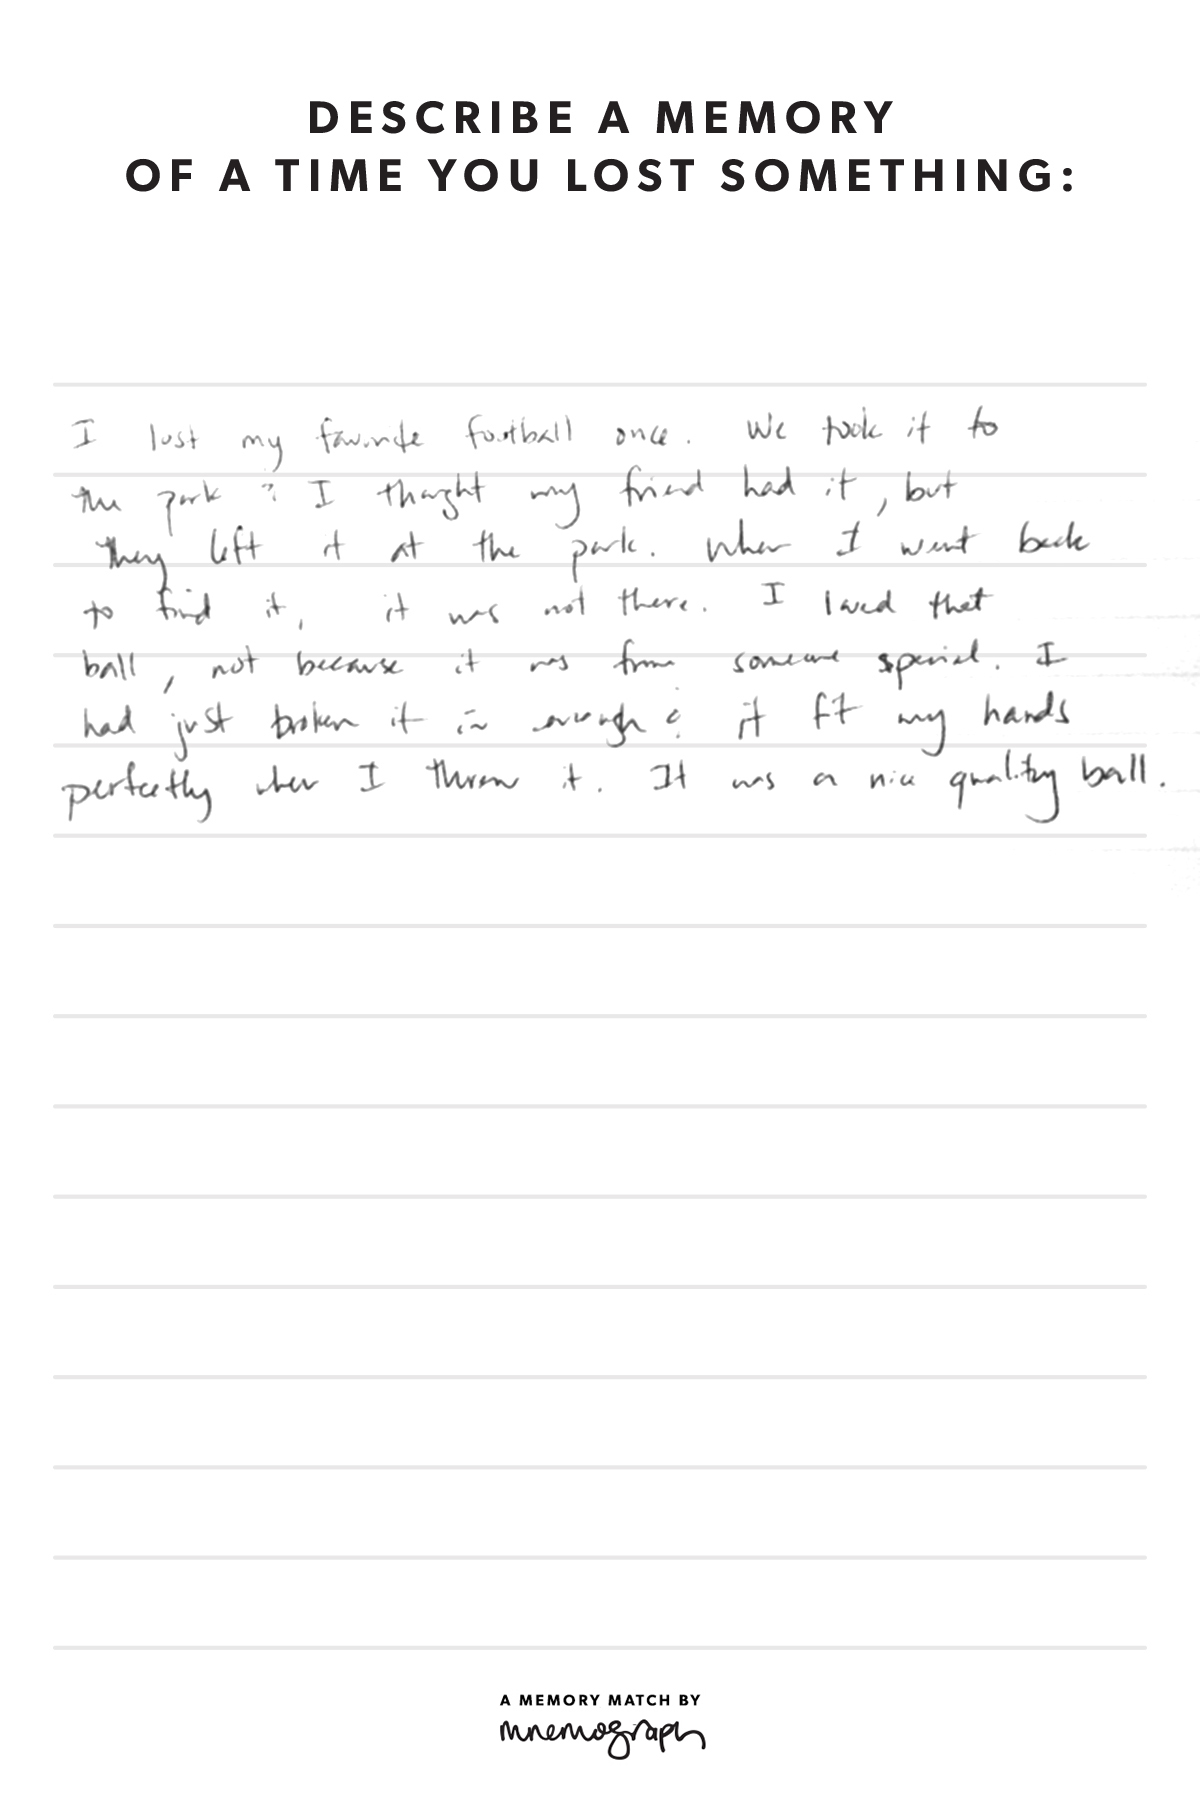 DESCRIBE A MEMORY
OF A TIME YOU LOST SOMETHING:
I lost my favorite football once. We took it to
the park & I thought my friend had it, but
they left it at the park. When I went back
to find it, it was not there. I loved that
ball, not because it was from someone special. I
had just broken it in enough & it fit my hands
perfectly when I threw it. It was a nice quality ball.
A MEMORY MATCH BY
mnemograph